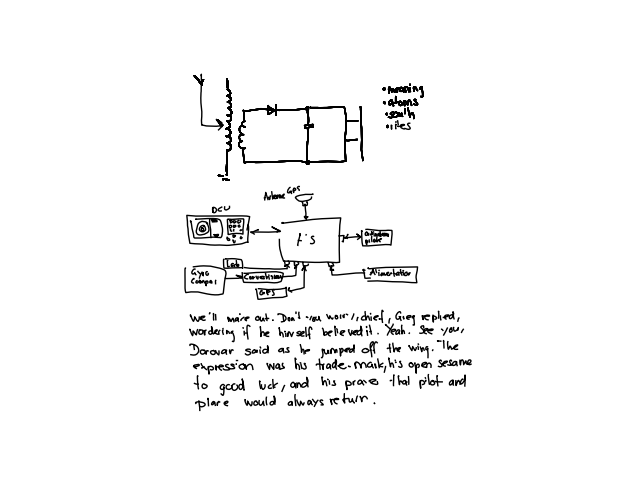 • meaning
• atoms
• south
• rites
Antenne GPS
DCU
AIS
Ordinateur pilote
Loch
Gyro
Compas
Convertisseur
GPS
Alimentation
We'll make out. Don't you worry, chief, Greg replied,
wondering if he himself believed it. Yeah. See you,
Donovan said as he jumped off the wing. The
expression was his trade-mark, his open sesame
to good luck, and his prayer that pilot and
plane would always return.